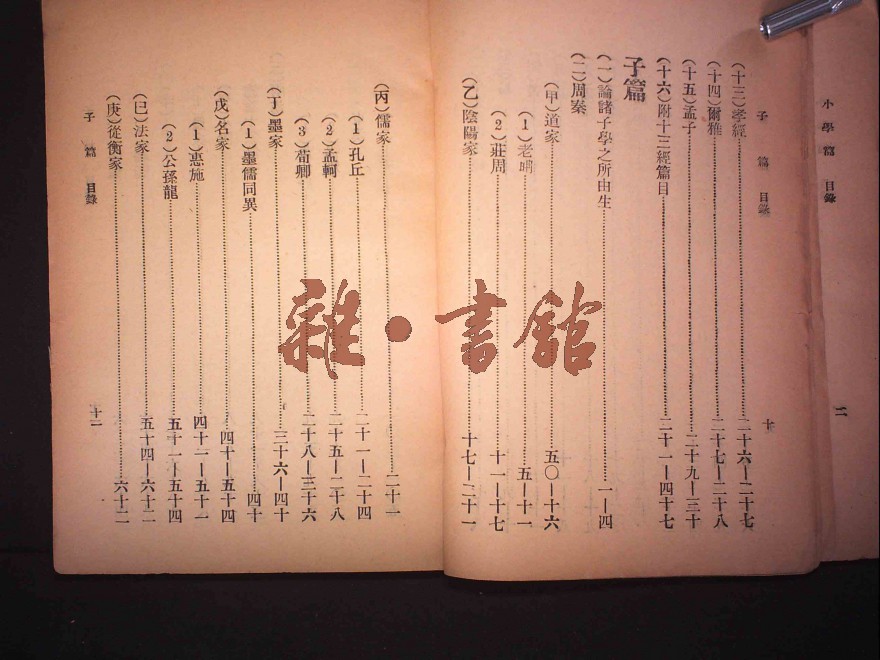 小學篇 目錄
二
子篇 目錄
十
(十三)孝經……二十六—二十七
(十四)爾雅……二十七—二十八
(十五)孟子……二十九—三十
(十六)附十三經篇目……二十一—四十七
子篇
(一)論諸子學之所由生……一—四
(二)周秦
(甲)道家……五〇—十六
(1)老聃……五—十一
(2)莊周……十一—十七
(乙)陰陽家……十七—二十一
(丙)儒家……二十一
(1)孔丘……二十一—二十四
(2)孟軻……二十五—二十八
(3)荀卿……二十八—三十六
(丁)墨家……三十六—四十
(1)墨儒同異……四十
(戊)名家……四十—五十四
(1)惠施……四十一—五十一
(2)公孫龍……五十一—五十四
(巳)法家……五十四—六十二
(庚)從衡家……六十二
子篇 目錄
十一
雜·書館